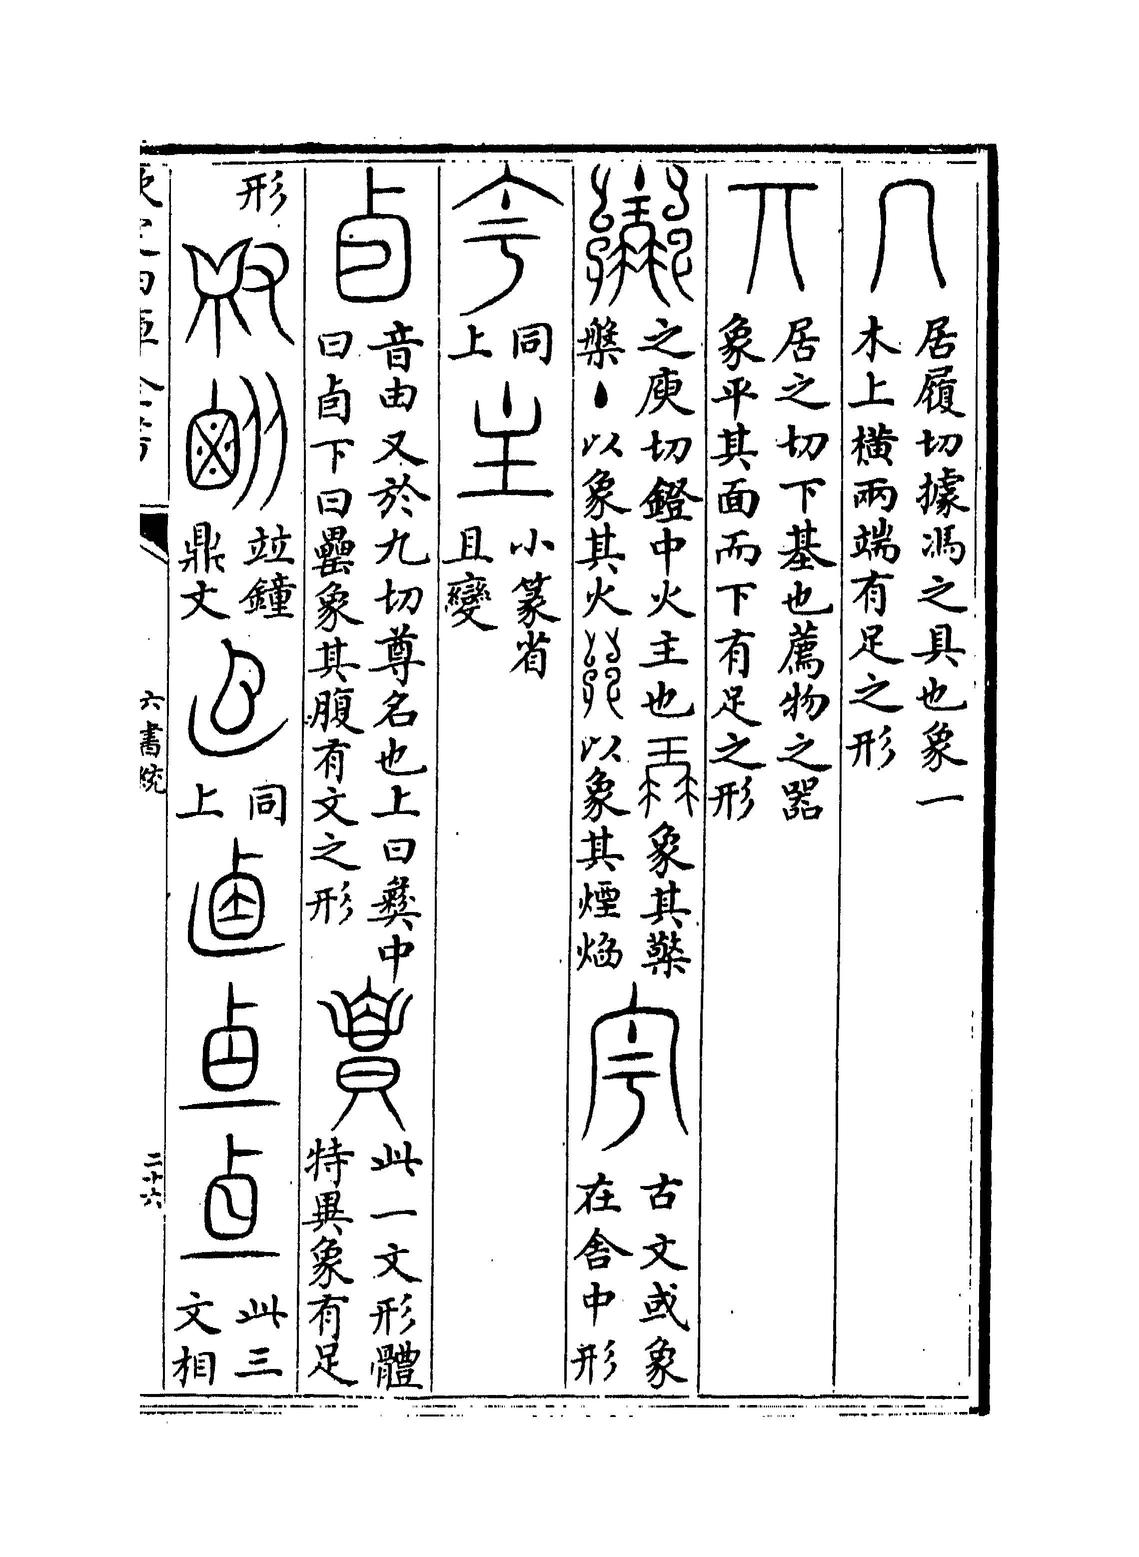 居履切據馮之具也象一
木上橫兩端有足之形
居之切下基也薦物之器
象平其面而下有足之形
之庾切鐙中火主也
象其檠
檠以象其火
以象其煙焰
古文或象
在舍中形
同
上
小篆省
且變
音由又於九切尊名也上曰彝中
曰卣下曰罍象其腹有文之形
此一文形體
特異象有足
形
竝鐘
鼎文
同
上
此三
文相
欽定四庫全書
六書統
二十六